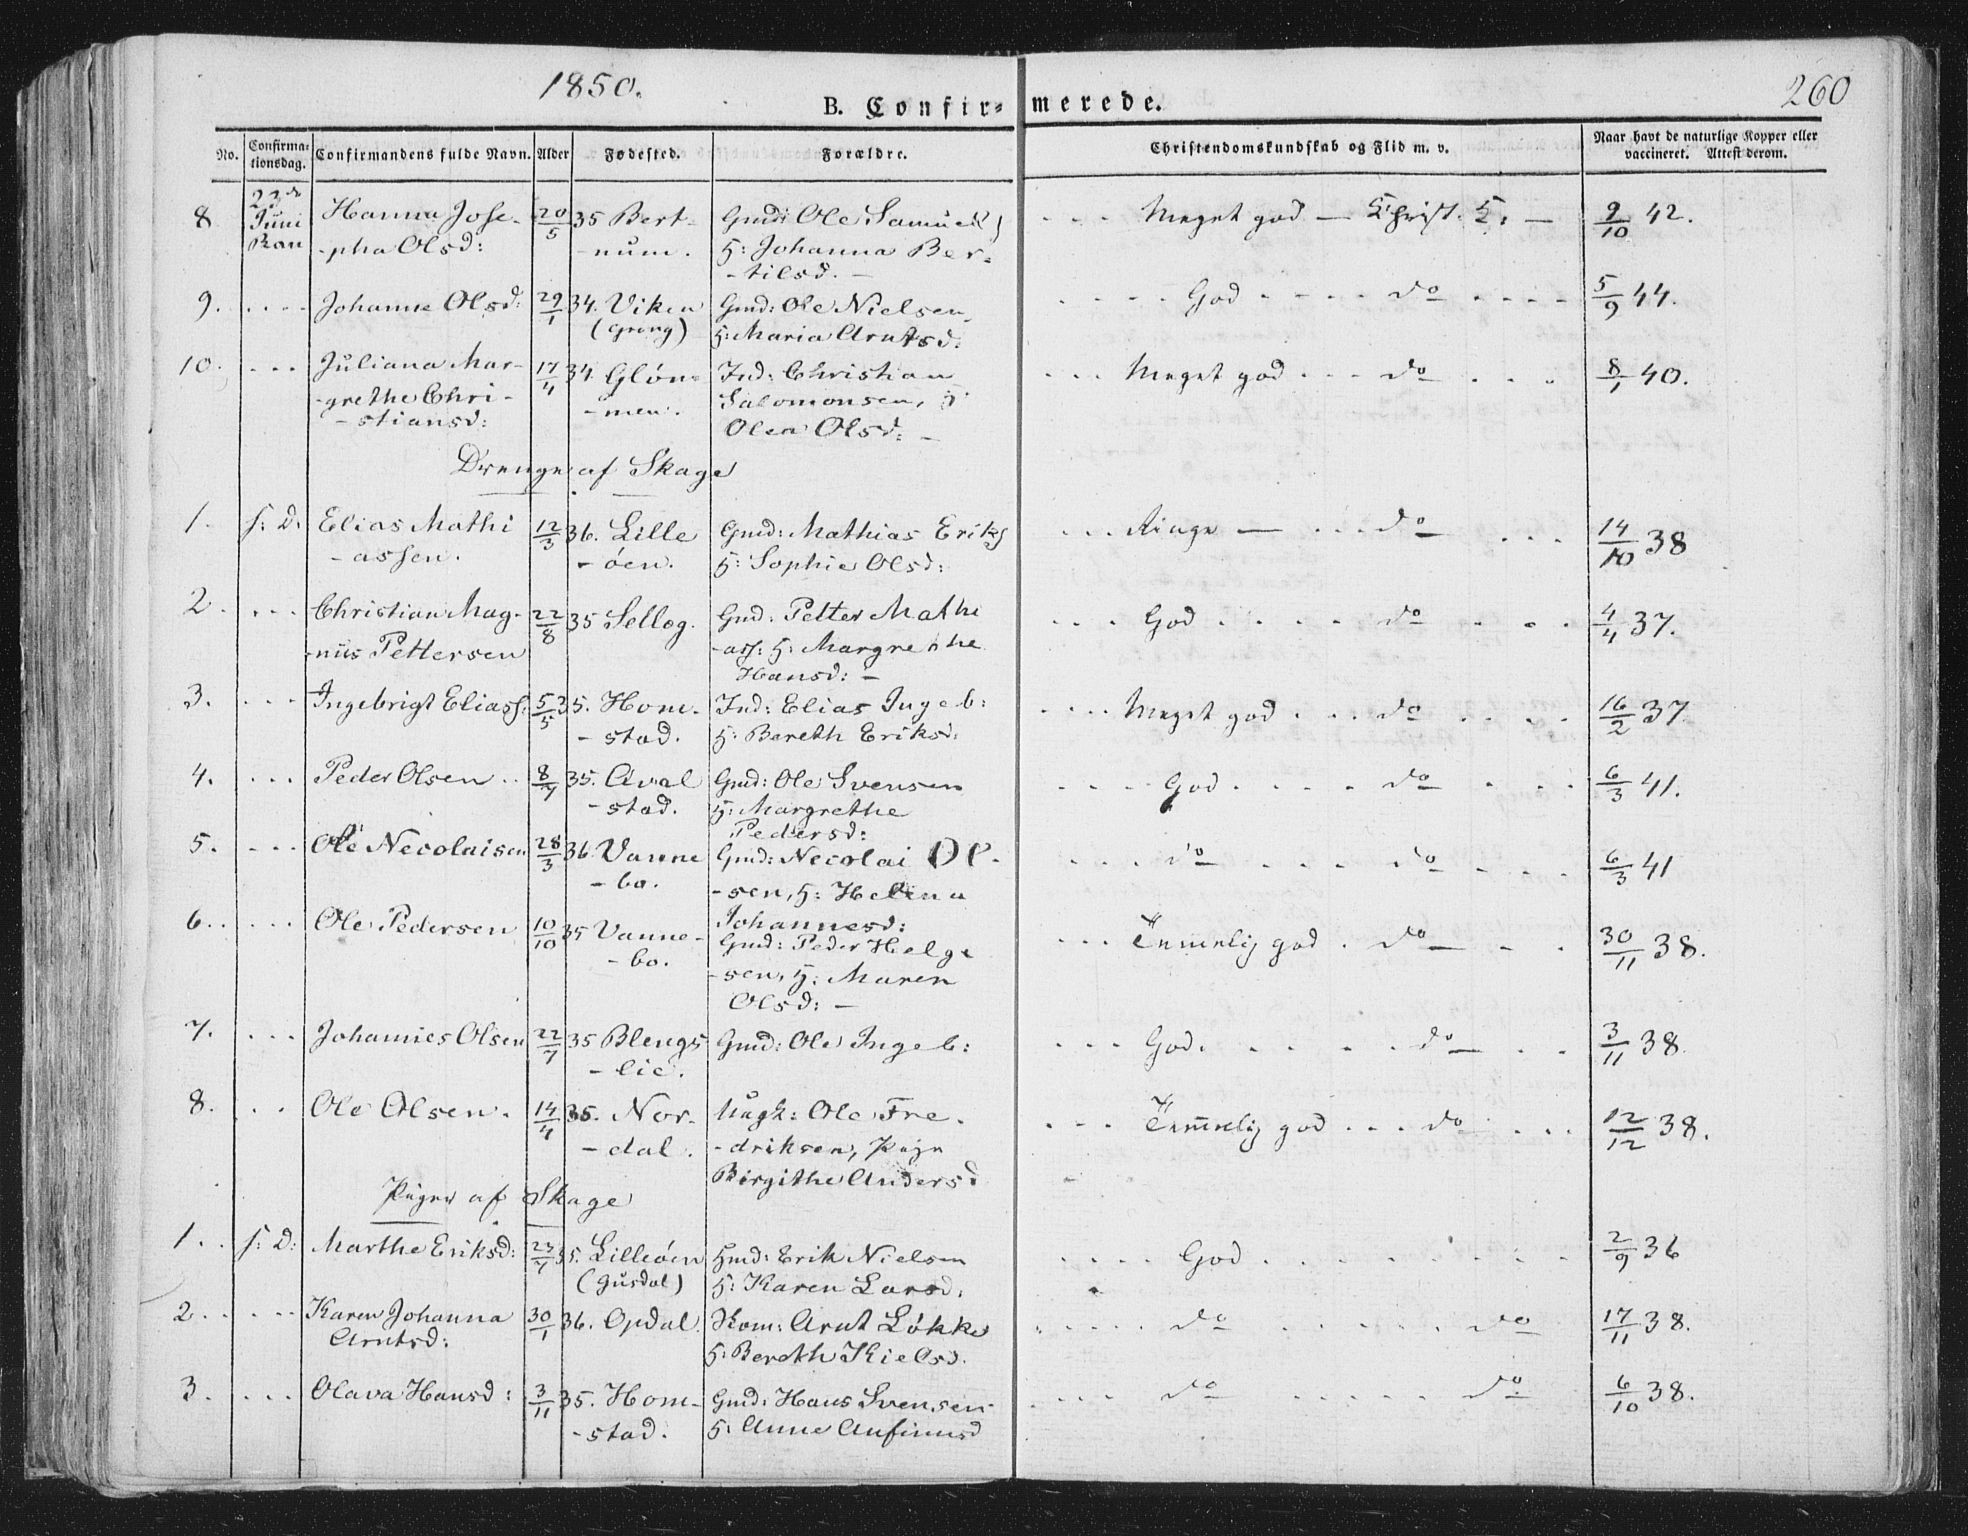 1850.
260
B. Confir- merede.
No. Confirmationsdag. Confirmandens fulde Navn. Alder Fødested. Forældre. Christendomskundskab og Flid m. v. Naar havt de naturlige Kopper eller vaccineret. Attest derom.
8. 23de Juni Ran Hanna Jose- 20/5 35 Bert- Gmd: Ole Samuels. . . . Meget god — Christ. K: — 9/10 42.
-pha Olsd: -num. H: Johanna Ber-
-tilsd. —
9. . . . . Johanne Olsd: 29/1 34. Viken Gmd: Ole Nielsen, . . . . God . . . . do . . . . 5/9 44.
(Grong) H: Maria Arntsd:
10. . . . Juliana Mar- 17/4 34. Gløm- Ind: Christian . . . Meget god . . . do . . . 8/1 40.
-grethe Chri- -men. Salomonsen, H:
-stiansd: Olea Olsd: —
Drenge af Skage
1. s: D: Elias Mathi 12/3 36. Lille Gmd: Mathias Eriks . . . Ringe — . . . do . . . 14/10 38
-assen. -øen. H: Sophie Olsd:
2. . . . Christian Mag- 22/8 35 Selløg. Gmd: Petter Mathi . . . God . . . . do . . . 4/4 37.
-nus Pettersen -ass: H: Margrethe
Hansd: —
3. . . . Ingebrigt Eliass: 5/5 35. Hom- Ind: Elias Ingeb: . . . . Meget god . . . do . . . . 16/2 37.
-stad. H: Bereth Eriksd:
4. . . . Peder Olsen . . 8/7 35. Aval Gmd: Ole Svensen . . . . God . . . . do . . . 6/3 41.
-stad. H: Margrethe
Pedersd:
5. . . . Ole Necolaisen 28/3 36. Vanne Gmd: Necolai Ol- . . . do . . . do . . . . 6/3 41
-bo. -sen, H: Helena
Johannesd:
6. . . . . Ole Pedersen 10/10 35 Vanne- Gmd: Peder Helge . . . Temmelig god . do . . 30/11 38.
-bo. -sen, H: Maren
Olsd: —
7. . . . Johannes Olsen 22/7 35 Blengs Gmd: Ole Ingeb: . . . God. . . . . do . . 3/11 38.
-lie.
8. . . Ole Olsen. 14/4 35. Nor- Ungk: Ole Fre- . . . Temmelig god . . . do . . . 12/12 38.
-dal. -driksen, Pige
Birgithe Andersd
Piger af Skage
1. . s: D: Marthe Eriksd: 23/7 35. Lilleøen Gmd: Erik Nielsen . . . . God . . . . . . . 2/9 36
(Gusdal) H: Karen Larsd:
2. . . . . Karen Johanna 30/1 36. Opdal. Kom: Arnt Løkke . . . . do . . . . . do 17/11 38.
Arntsd: H: Bereth Kielsd.
3. . . . Olava Hansd: 3/11 35. Hom- Gmd: Hans Svensen . . . do . . . . . do 6/10 38.
-stad. H: Anne Anfinnsd